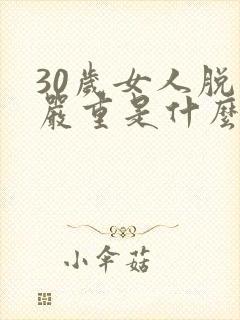 30歲女人脱
嚴重是什麼
小傘菇